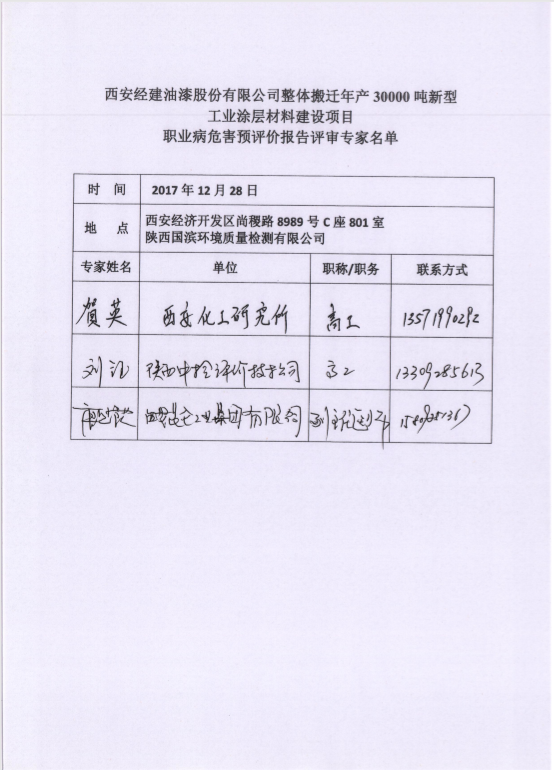 西安经建油漆股份有限公司整体搬迁年产 30000 吨新型
工业涂层材料建设项目
职业病危害预评价报告评审专家名单
时 间 2017 年 12 月 28 日
地 点 西安经济开发区尚稷路 8989 号 C 座 801 室
陕西国滨环境质量检测有限公司
专家姓名 单位 职称/职务 联系方式
贺英 西安化工研究所 高工 13571990292
刘 陕西中检评价技术公司 高工 13309285613
工业集团有限公司 副主任医师